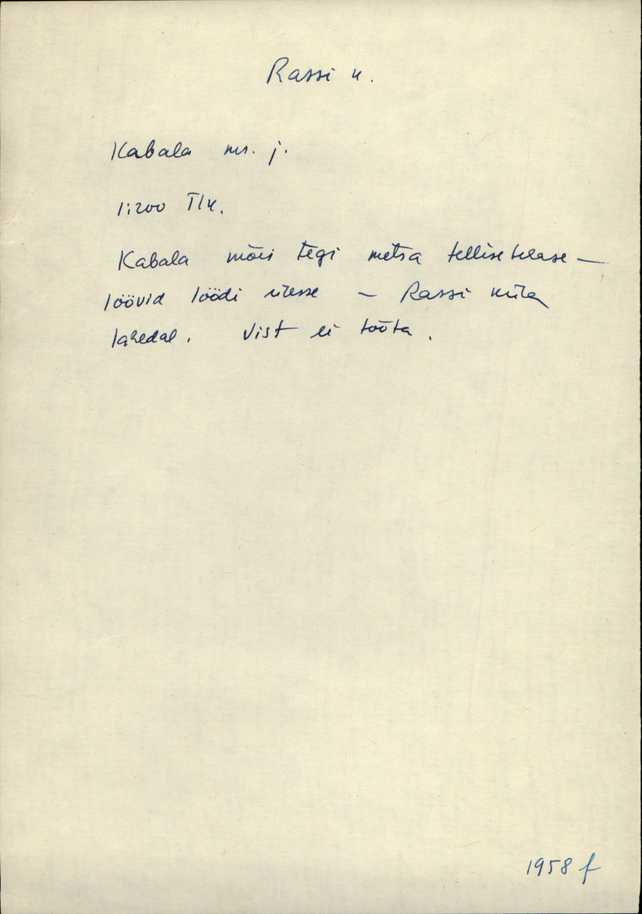 Rassi k.
Kabala ms. j.
1:200 Tln.
Kabala mõis tegi metsa tellisetehase –
lõõvid löödi ülesse – Rassi küla
lähedal. Vist ei tööta.
1958 f